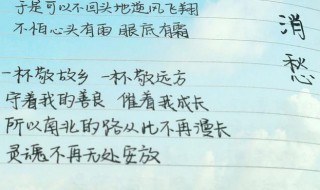 于是可以不回头地逆风飞翔
不怕心头有雨 眼底有霜
一杯敬故乡 一杯敬远方
守着我的善良 催着我成长
所以南北的路从此不再漫长
灵魂不再无处安放
消愁